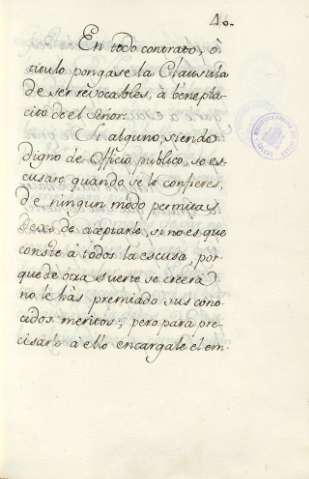 40.
En todo contrato, ó
titulo pongase la Clausula
de ser revocables, à beneplá
cito de el Señor.
Si alguno, siendo
digno de Officio publico, se es-
cusare quando se le confieres,
de ningun modo permitas
dexe de aceptarle, si no es que
conste à todos la escusa, por
que de otra suerte se creerà
no le hàs premiado sus cono
cidos meritos; pero para pre-
cisarlo à ello encargale el em-